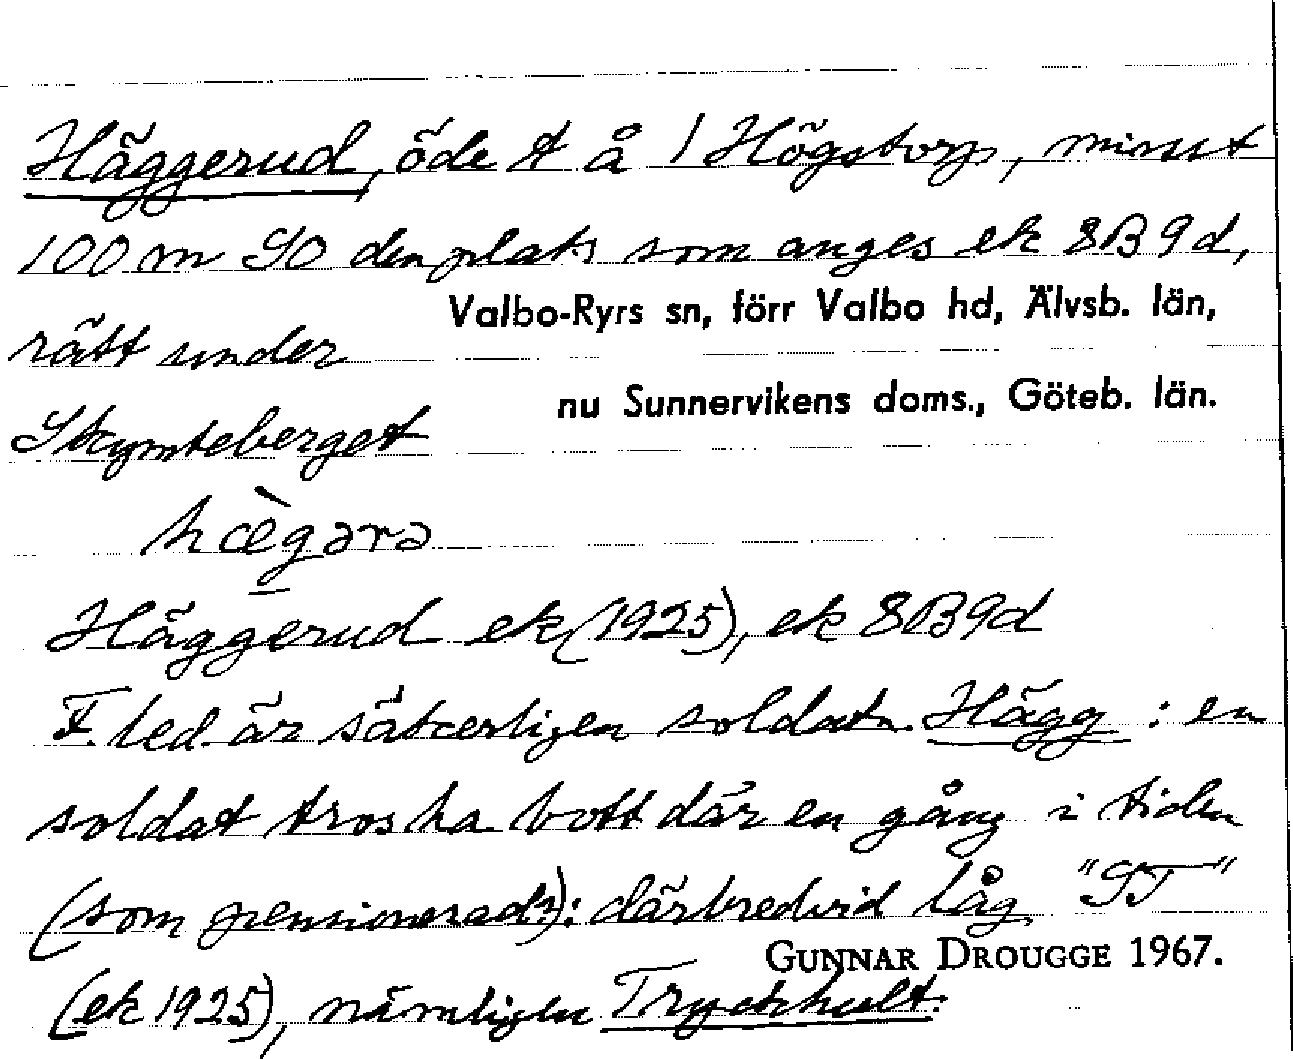 Häggerud, öde t å 1 Högstorp, minst
100 m SO den plats som anges ek 8B9d,
Valbo-Ryrs sn, förr Valbo hd, Älvsb. län,
rätt under
nu Sunnervikens doms., Göteb. län.
Skymteberget
hæ̀gərə
Häggerud ek (1925), ek 8B9d
F. led. är säkerligen soldatn. Hägg : en
soldat tros ha bott där en gång i tiden
(som pensionerad?): därbredvid låg "ST"
GUNNAR DROUGGE 1967.
(ek 1925), nämligen Tryckhult.